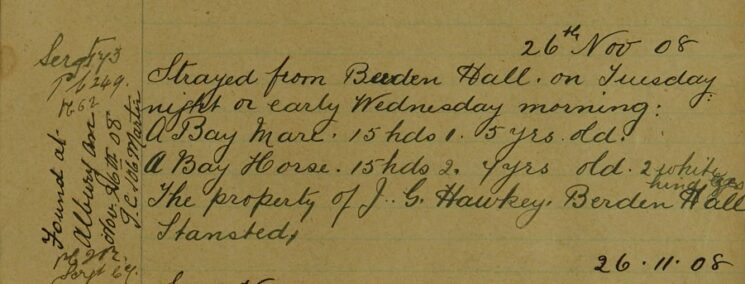 26th Nov 08
Strayed from Berden Hall. on Tuesday
night or early Wednesday morning:
A Bay Mare. 15 hds 1. 5 yrs. old.
A Bay Horse. 15 hds 2. 4 yrs old. 2 white
hind legs
The property of J. G. Hawkey. Berden Hall
Stansted,
26.11.08
Sergt 43
Pc 249.
Found at
Albury on
Nov. 26th 08
P.C. 106 Martin
Sergt 67.